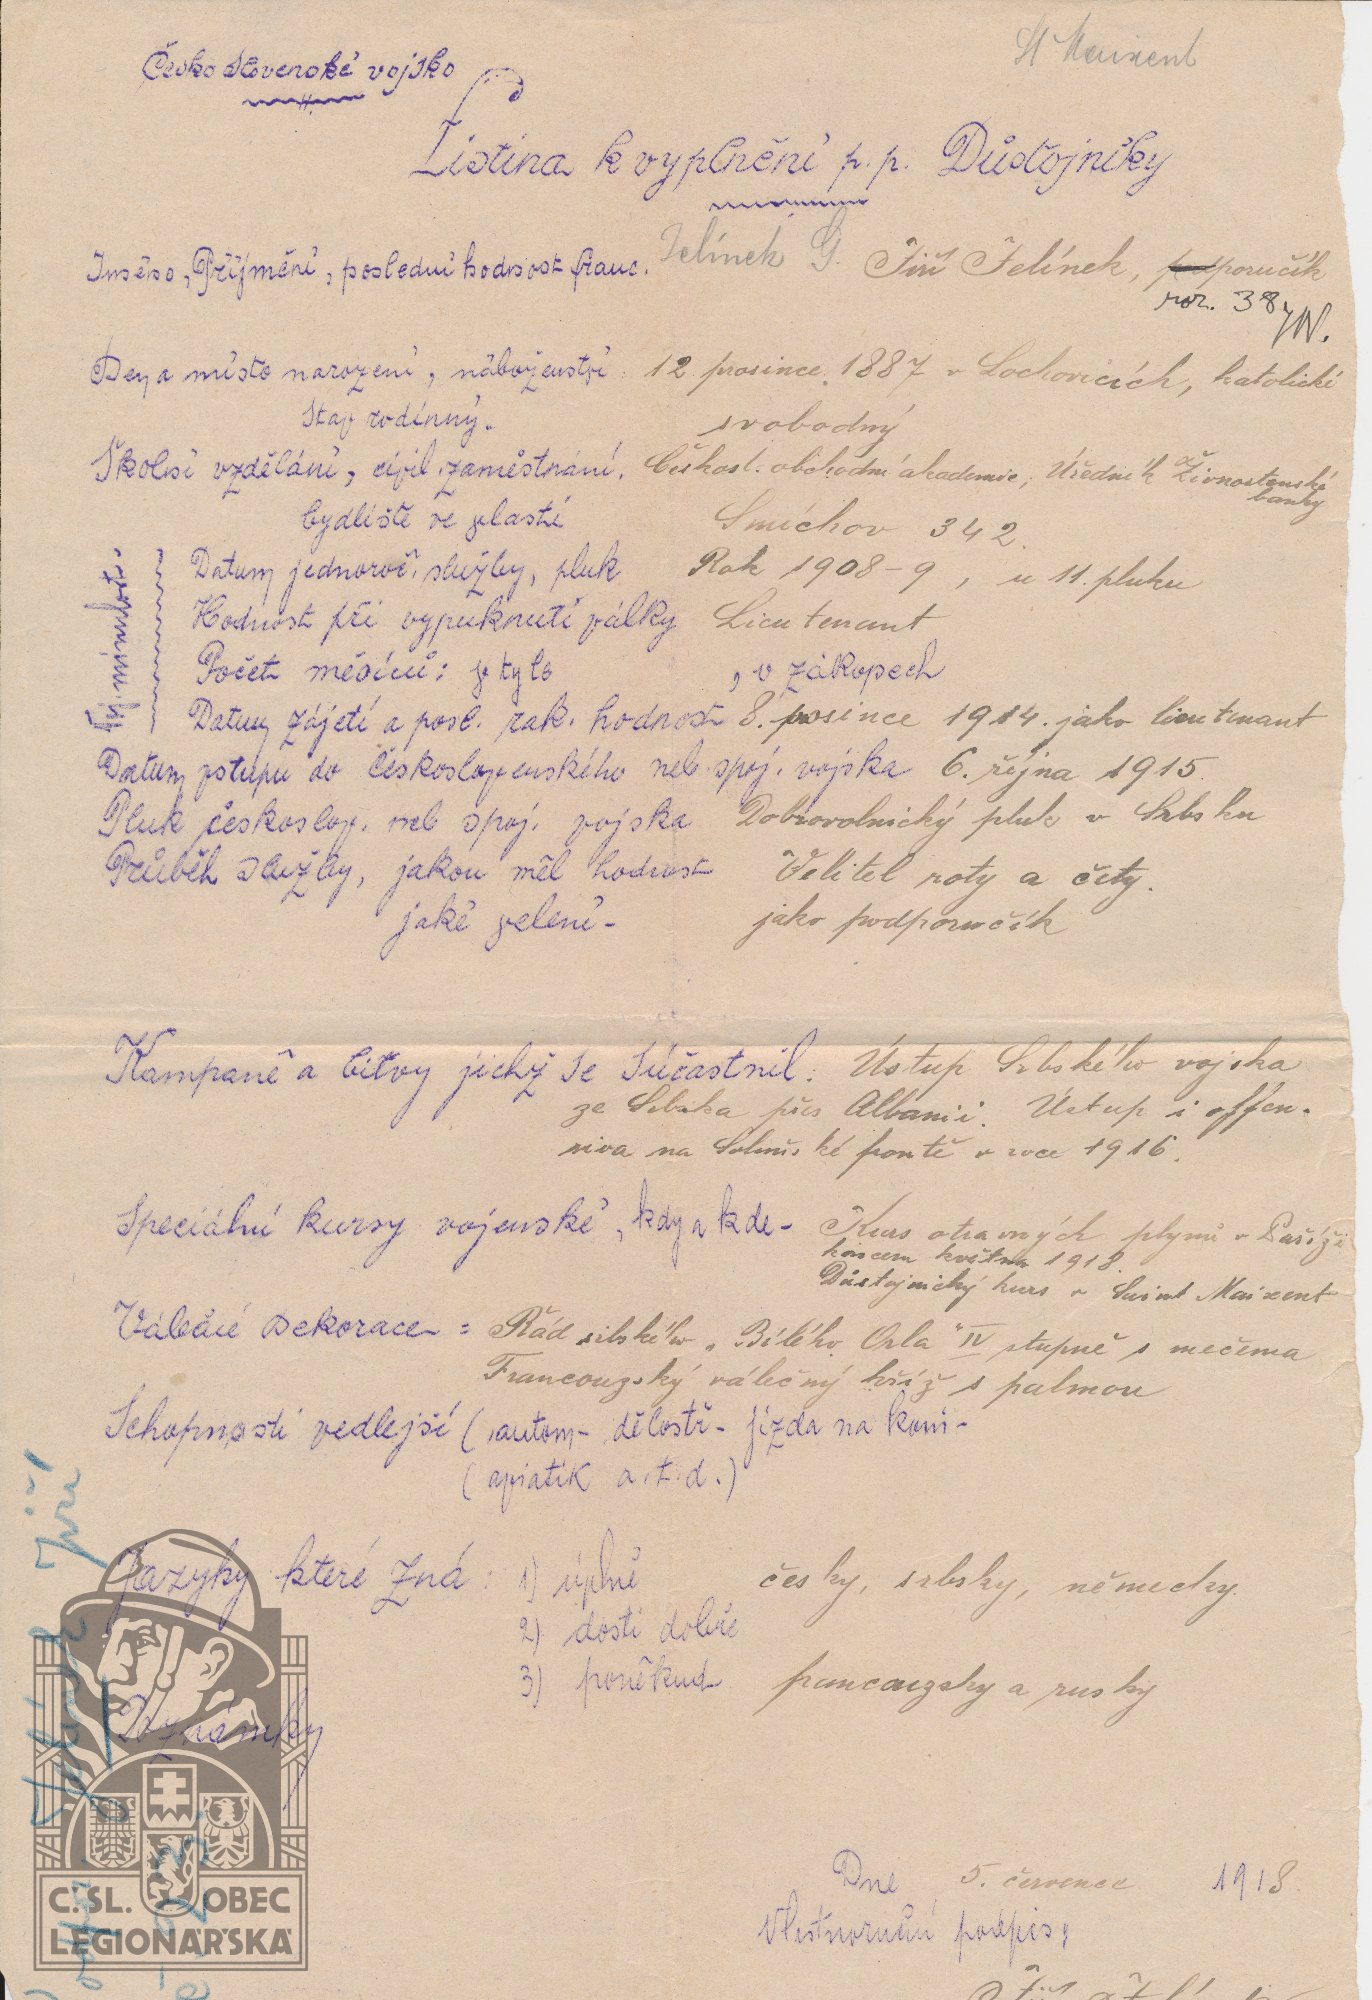 St Maixent
Československé vojsko
Listina k vyplnění p.p. Důstojníky
Jméno, Příjmění, poslední hodnost franc. Jelínek G. Jiří Jelínek, podporučík
roz. 38
Den a místo narození, náboženství 12 prosince 1887 v Lochovicích, katolické
Stav rodinný. svobodný
Školní vzdělání, civil. zaměstnání. Českosl. obchodní akademie, Úředník Živnostenské
banky
bydliště ve vlasti Smíchov 342.
Datum jednoroč. služby, pluk Rok 1908-9, u 11. pluku
Hodnost při vypuknutí války Lieutenant
Počet měsíců: v týle , v zákopech
Datum zajetí a posl. rak. hodnost 8. prosince 1914. jako lieutenant
Datum vstupu do Československého neb spoj. vojska 6. října 1915
Pluk českoslov. neb spoj. vojska Dobrovolnický pluk v Srbsku
Průběh služby, jakou měl hodnost Velitel roty a čety.
jaké velení - jako podporučík
Kampaně a bitvy jichž se súčastnil: Ústup Srbského vojska
ze Srbska přes Albanii. Ústup i offen-
siva na Soluňské frontě v roce 1916.
Speciální kursy vojenské, kdy a kde - Kurs otravných plynů v Paříži
koncem května 1918.
Důstojnický kurs v Saint Maixent
Válečné Dekorace = Řád srbského „Bílého Orla" IV stupně s mečema
Francouzský válečný kříž s palmou
Schopnosti vedlejší (autom - dělostř - jízda na koni -
(aviatik a.t.d.)
Jazyky které zná: 1) úplně česky, srbsky, německy.
2) dosti dobře
3) poněkud francouzsky a rusky
Poznámky
Jelínek Jiří
Dne 5. července 1918.
Vlastnoruční podpis:
Č:SL. OBEC
LEGIONÁŘSKÁ